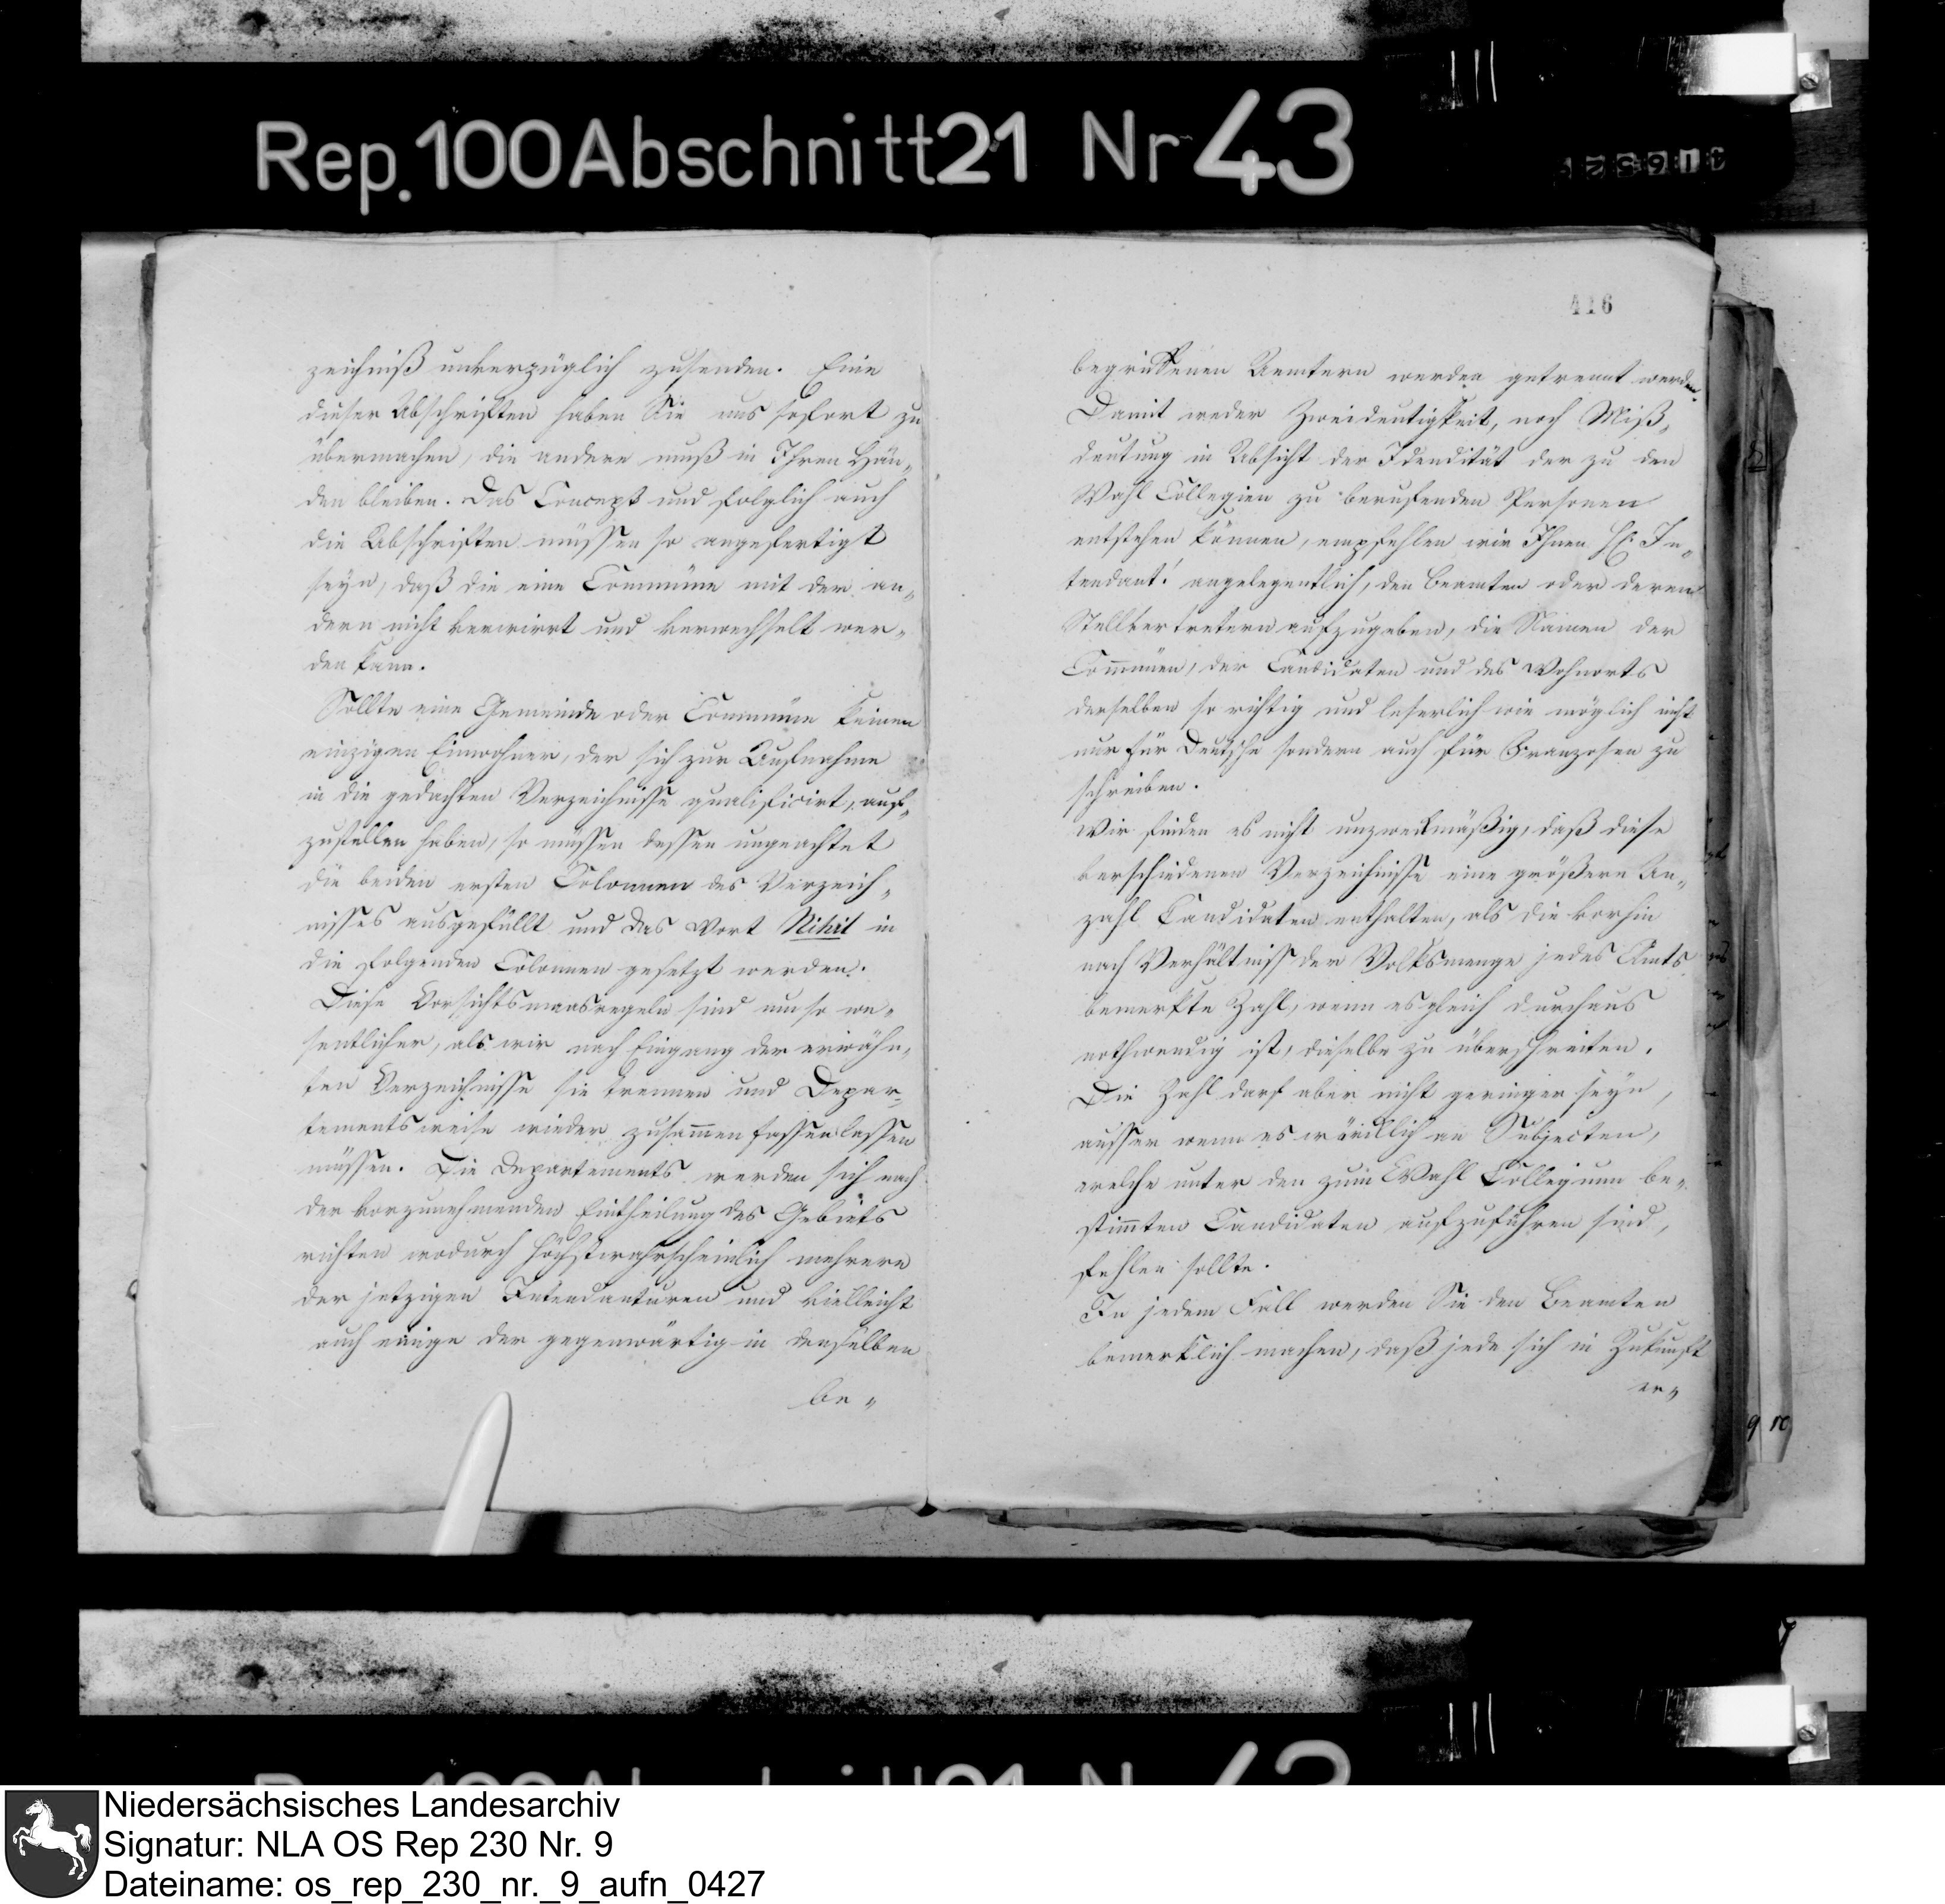 Rep. 100 Abschnitt 21 Nr 43
416
zeichniß unverzüglich zusenden. Eine
dieser Abschriften haben Sie uns sofort zu
übermachen, die andere muß in Ihren Hän„
den bleiben. Das Concept und folglich auch
die Abschriften müssen so angefertigt
seyn, daß die eine Commüne mit der an„
dern nicht verwirrt und verwechselt wer„
den kann.
Sollte eine Gemeinde oder Commüne keinen
einzigen Einwohner, der sich zur Aufnahme
in die gedachten Verzeichnisse qualificirt, auf„
zustellen haben, so müssen dessen ungeachtet
die beiden ersten Colonnen des Verzeich„
nisses ausgefüllt und das Wort Nihil in
die folgenden Colonnen gesetzt werden.
Diese Vorsichtsmaasregeln sind um so we„
sentlicher, als wir nach Eingang der erwähn„
ten Verzeichnisse sie trennen und Depar„
tementsweise wieder zusammenfassen lassen
müssen. Die Departements werden sich nach
der vorzunehmenden Eintheilung des Gebiets
richten wodurch höchstwahrscheinlich mehrere
der jetzigen Intendanturen und vielleicht
auch einige der gegenwärtig in denselben
be„
begriffenen Aemtern werden getrennt werden.
Damit weder Zweideutigkeit, noch Miß„
deutung in Absicht der Idendität der zu den
Wahl Collegien zu berufenden Personen
entstehen können, empfehlen wir Ihnen H. In„
tendant! angelegentlich, den Beamten oder deren
Stellvertretern aufzugeben, die Namen der
Commünen, der Candidaten und des Wohnorts
derselben so richtig und leserlich wie möglich nicht
nur für Deutsche sondern auch für Franzosen zu
schreiben.
Wir finden es nicht unzweckmäßig, daß diese
verschiedenen Verzeichnisse eine größere An„
zahl Candidaten enthalten, als die vorhin
nach Verhältniss der Volksmenge jedes Amts
bemerkte Zahl, wenn es gleich durchaus
nothwendig ist, dieselbe zu überschreiten.
Die Zahl darf aber nicht geringer seyn,
ausser wenn es würcklich an Subjecten,
welche unter den zum Wahl Collegium be„
stimmten Candidaten aufzuführen sind,
fehlen sollte.
In jedem Fall werden Sie den Beamten
bemerklich machen, daß jede sich in Zukunft
er„
Niedersächsisches Landesarchiv
Signatur: NLA OS Rep 230 Nr. 9
Dateiname: os_rep_230_nr._9_aufn_0427